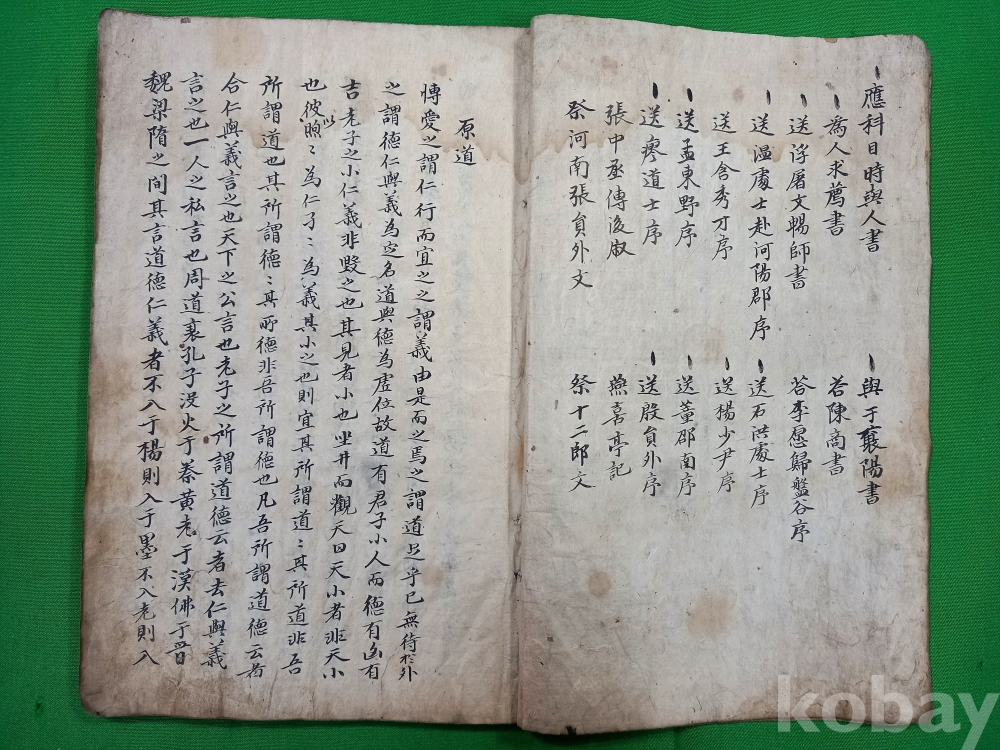 應科目時與人書 與于襄陽書
為人求薦書 荅陳商書
送浮屠文暢師書 荅李愿歸盤谷序
送温處士赴河陽郡序 送石洪處士序
送王含秀才序 送楊少尹序
送孟東野序 送董郡南序
送廖道士序 送殷員外序
張中丞傳後敍 燕喜亭記
祭河南張員外文 祭十二郎文
原道
愽愛之謂仁行而宜之之謂義由是而之焉之謂道足乎已無待於外
之謂德仁與義為定名道與德為虛位故道有君子小人而德有凶有
吉老子之小仁義非毀之也其見者小也坐井而觀天曰天小者非天小
也彼以煦〻為仁孑〻為義其小之也則宜其所謂道〻其所道非吾
所謂道也其所謂德〻其所德非吾所謂德也凡吾所謂道德云者
合仁與義言之也天下之公言也老子之所謂道德云者去仁與義
言之也一人之私言也周道衰孔子没火于秦黄老于漢佛于晋
魏梁隋之間其言道德仁義者不入于楊則入于墨不入老則入
kobay